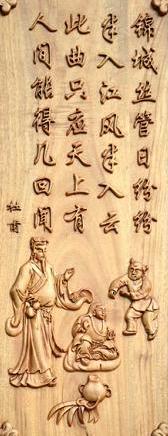 锦城丝管日纷纷
半入江风半入云
此曲只应天上有
人间能得几回闻
杜甫